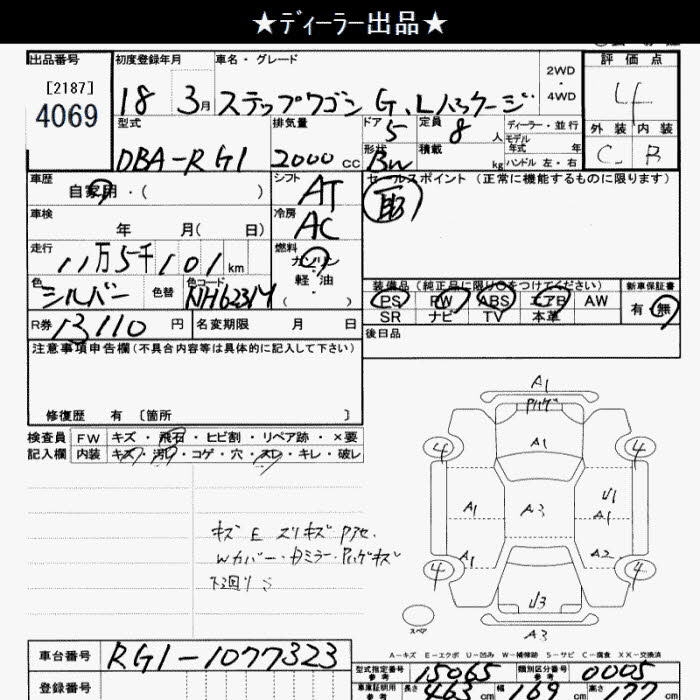 ★ディーラー出品★
出品番号 初度登録年月 車名・グレード 2WD・4WD 評価点
[2187]
4069 18 3月 ステップワゴン G、Lパッケージ 4
型式 排気量 ドア 5 定員 8人 ディーラー・並行 外装 内装
DBA-RG1 2000cc 形状 Bw 積載 kg モデル年式 年 ハンドル 左・右 C B
車歴 自家用・( ) シフト AT セールスポイント (正常に機能するものに限ります)
車検 年 月( 日) 冷房 AC
走行 11万5千101km 燃料 ガソリン 軽油・( )
色 シルバー 色替 色コード NH623M
装備品(純正品に限り○をつけてください) 新車保証書
PS PW ABS エアB AW 有・無
SR ナビ TV 本革
R券 13110円 名変期限 月 日 後日品
注意事項申告欄(不具合内容等は具体的に記入して下さい)
修復歴 有 [箇所 ]
検査員 FW キズ・飛石・ヒビ割・リペア跡・×要
記入欄 内装 キズ・汚れ・コゲ・穴・スレ・キレ・破レ
キズ E スリキズ
Wカバー
下廻りS
A1
A1
4 4
A1 A3 U1
A1
A1 A2
4 4
U3
スペア A3
A-キズ E-エクボ U-凹み W-補修跡 S-サビ C-腐食 XX-交換済
車台番号 RG1-1077323
型式指定番号 参考 15065 類別区分番号 参考 0005
登録番号 車庫証明用 参考 長さ 463cm 幅 169cm 高さ 177cm